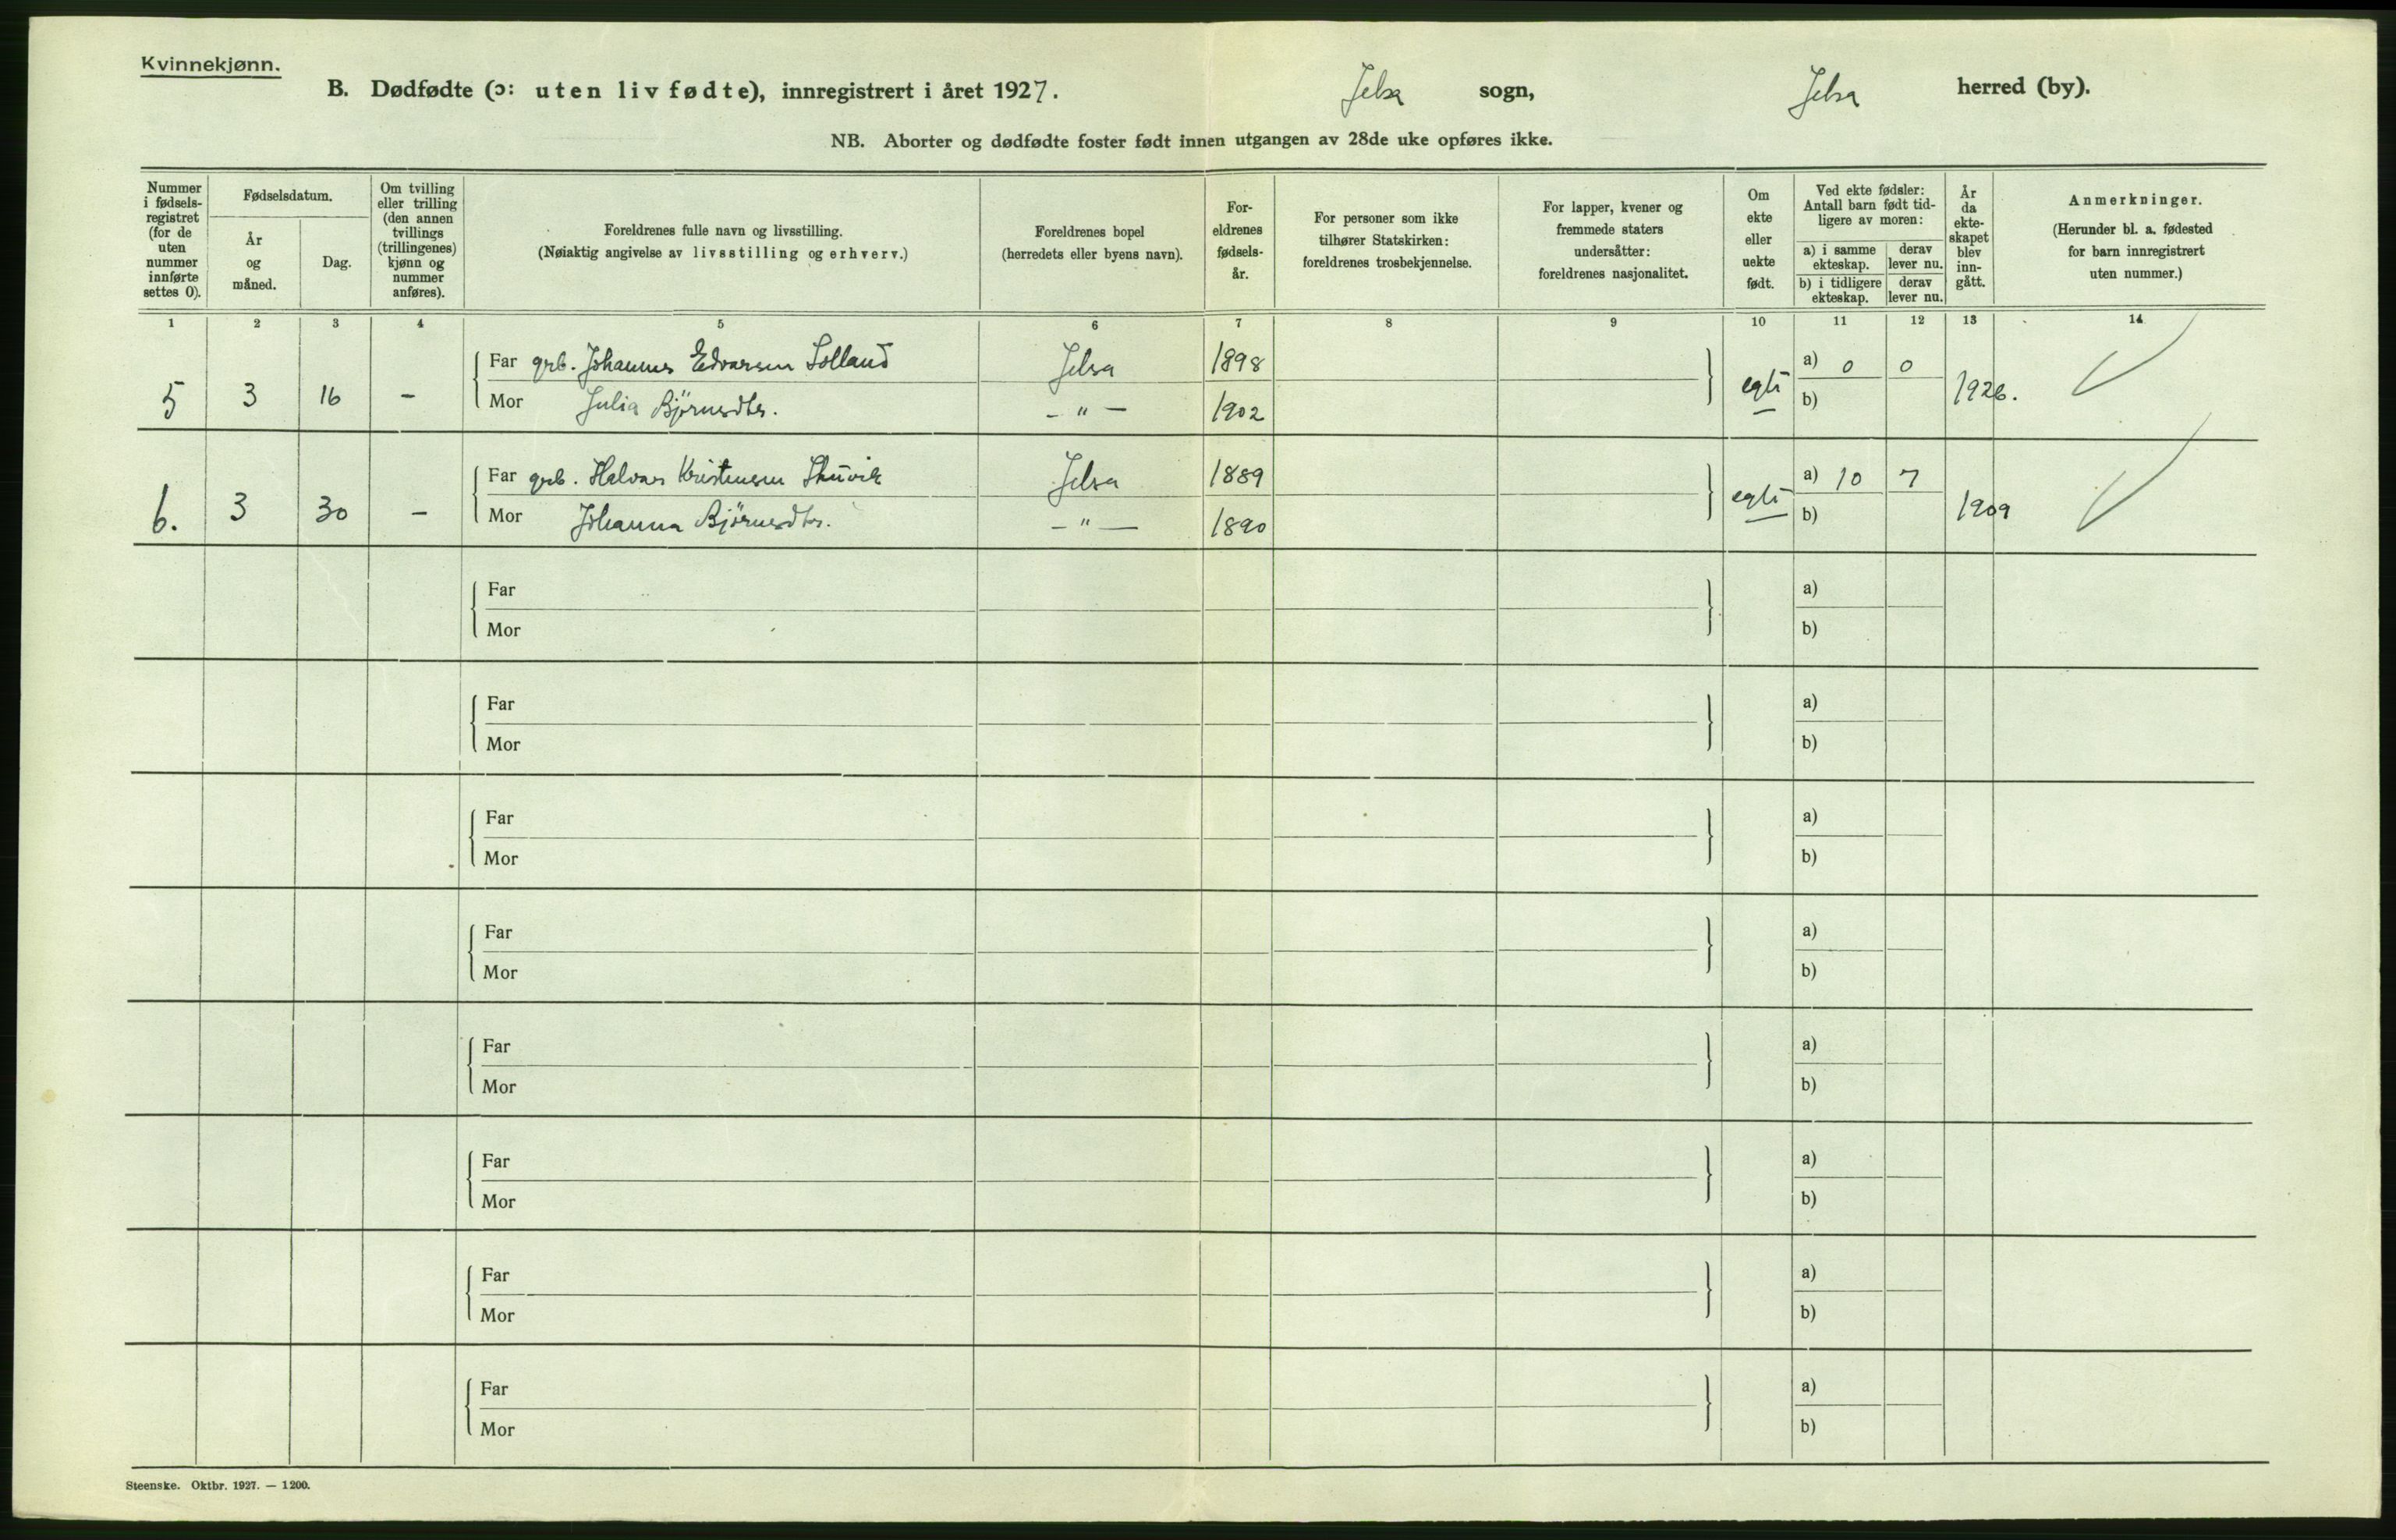 Kvinnekjønn.
B. Dødfødte (ɔ: uten liv fødte), innregistrert i året 1927. Jelsa sogn, Jelsa herred (by).
NB. Aborter og dødfødte foster født innen utgangen av 28de uke opføres ikke.
Nummer i fødselsregistret (for de uten nummer innførte settes 0).
Fødselsdatum.
År og måned.
Dag.
Om tvilling eller trilling (den annen tvillings (trillingenes) kjønn og nummer anføres).
Foreldrenes fulle navn og livsstilling.
(Nøiaktig angivelse av livsstilling og erhverv.)
Foreldrenes bopel
(herredets eller byens navn).
Foreldrenes fødselsår.
For personer som ikke tilhører Statskirken: foreldrenes trosbekjennelse.
For lapper, kvener og fremmede staters undersåtter: foreldrenes nasjonalitet.
Om ekte eller uekte født.
Ved ekte fødsler: Antall barn født tidligere av moren:
a) i samme ekteskap. derav lever nu.
b) i tidligere ekteskap. derav lever nu.
År da ekteskapet blev inngått.
Anmerkninger.
(Herunder bl. a. fødested for barn innregistrert uten nummer.)
1 2 3 4 5 6 7 8 9 10 11 12 13 14
Far grb. Johannes Edvarsen Solland Jelsa 1898 a) 0 0
5 3 16 – egte 1926.
Mor Julia Bjørnsdtr. – " – 1902 b)
Far grb. Halvar Kristensen Jelsa 1889 a) 10 7
6. 3 30 – egte 1909
Mor Johanna Bjørnsdtr. – " – 1890 b)
Far a)
Mor b)
Far a)
Mor b)
Far a)
Mor b)
Far a)
Mor b)
Far a)
Mor b)
Far a)
Mor b)
Far a)
Mor b)
Far a)
Mor b)
Steenske. Oktbr. 1927. — 1200.